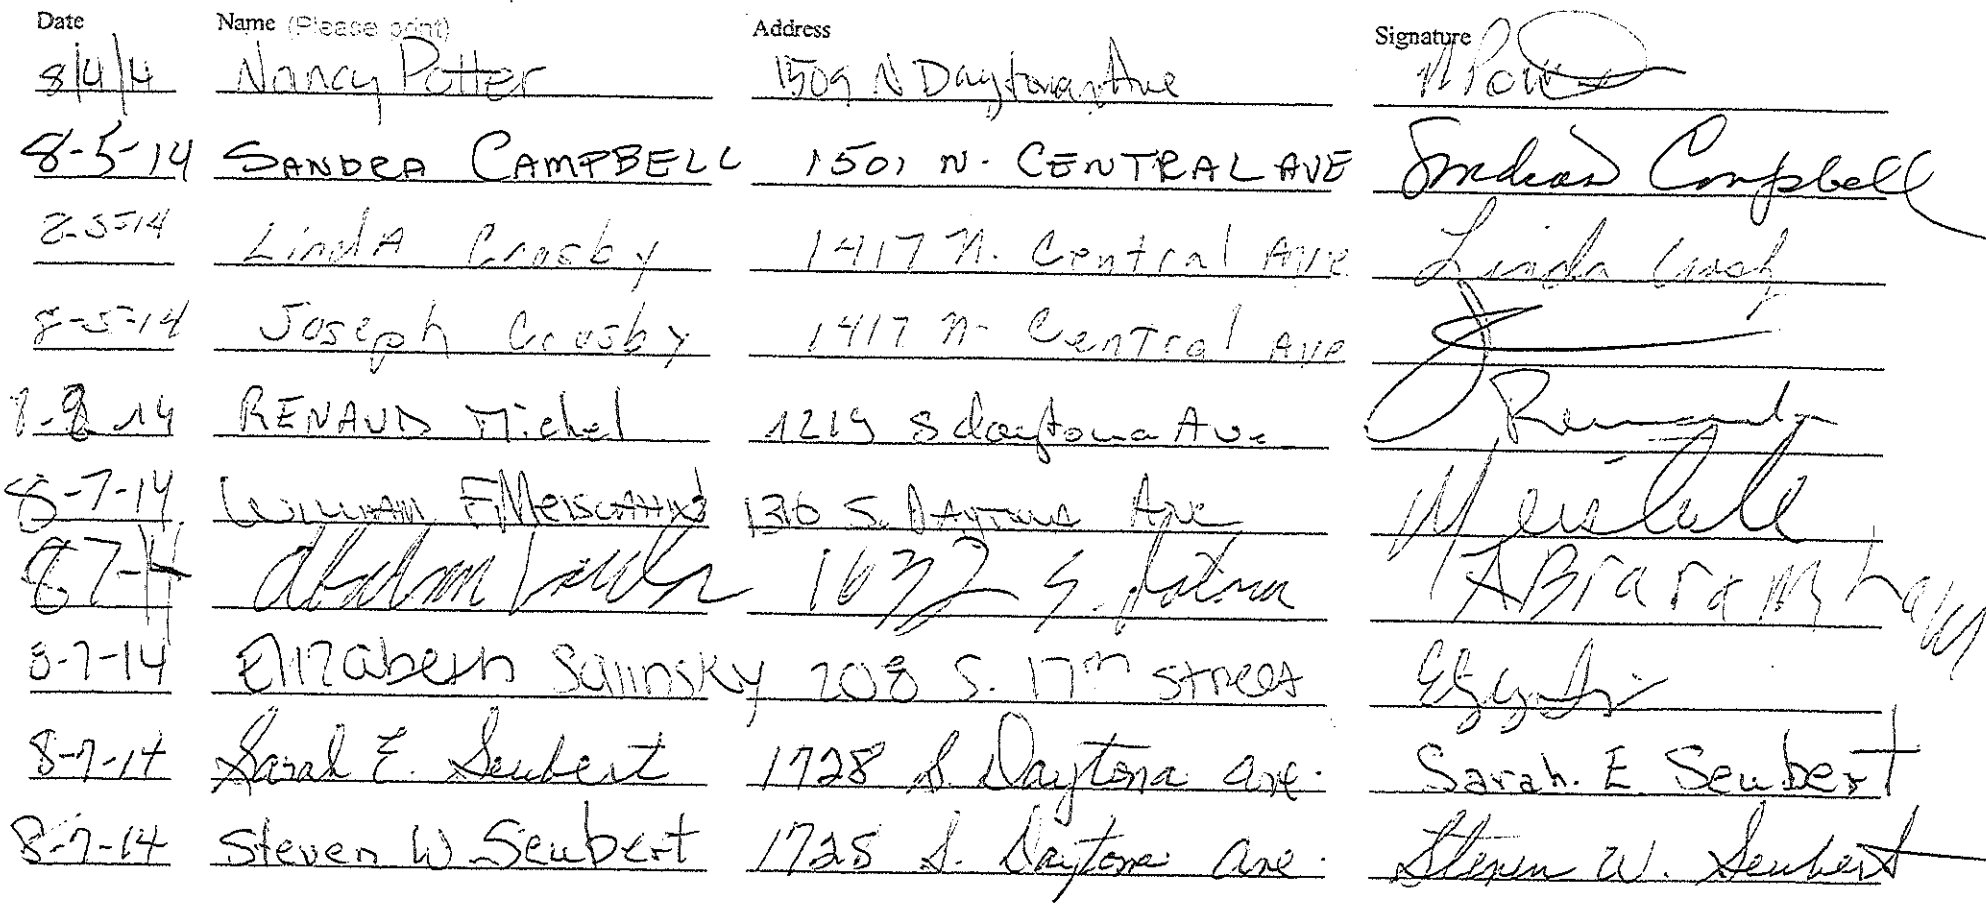 Date Name (Please print) Address Signature
8/4/14 Nancy Potter 1509 N Daytona Ave
8-5-14 SANDRA CAMPBELL 1501 N. CENTRAL AVE Sandra Campbell
8-5-14 LindA Crosby 1417 N. Central Ave Linda Crosby
8-5-14 Joseph Crosby 1417 N. Central Ave
RENAUD Michel 1219 S daytona Ave
8-7-14 WILLIAM F 1316 S. DAYTONA Ave
8-7-14 1632 S.
8-7-14 Elizabeth Salinsky 208 S. 17th Street
8-7-14 Sarah E. Seubert 1728 S. Daytona Ave. Sarah. E. Seubert
8-7-14 Steven W Seubert 1728 S. Daytona Ave. Steven W. Seubert